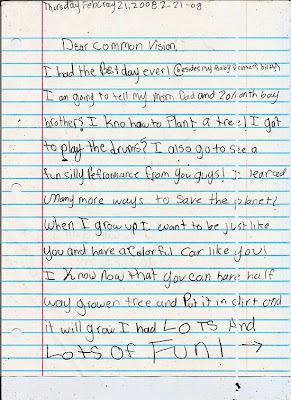 Thursday Febuary 21, 2008 2-21-08
Dear Common Vision
I had the Best day ever! (Besides my Baby brothers birth)
I am going to tell my mom Dad and 20month boy
brother? I kno how to Plant a tree! I got
to play the drums? I also go to see a
fun silly Prefromance from you guys! I learned
many more ways to save the planet!
when I grow up I want to be just like
you and have a colorful car like you!
I Know Now that you can have half
way growen tree and Put it in dirt and
it will grow I had LOTS And
Lots OF FUN! →